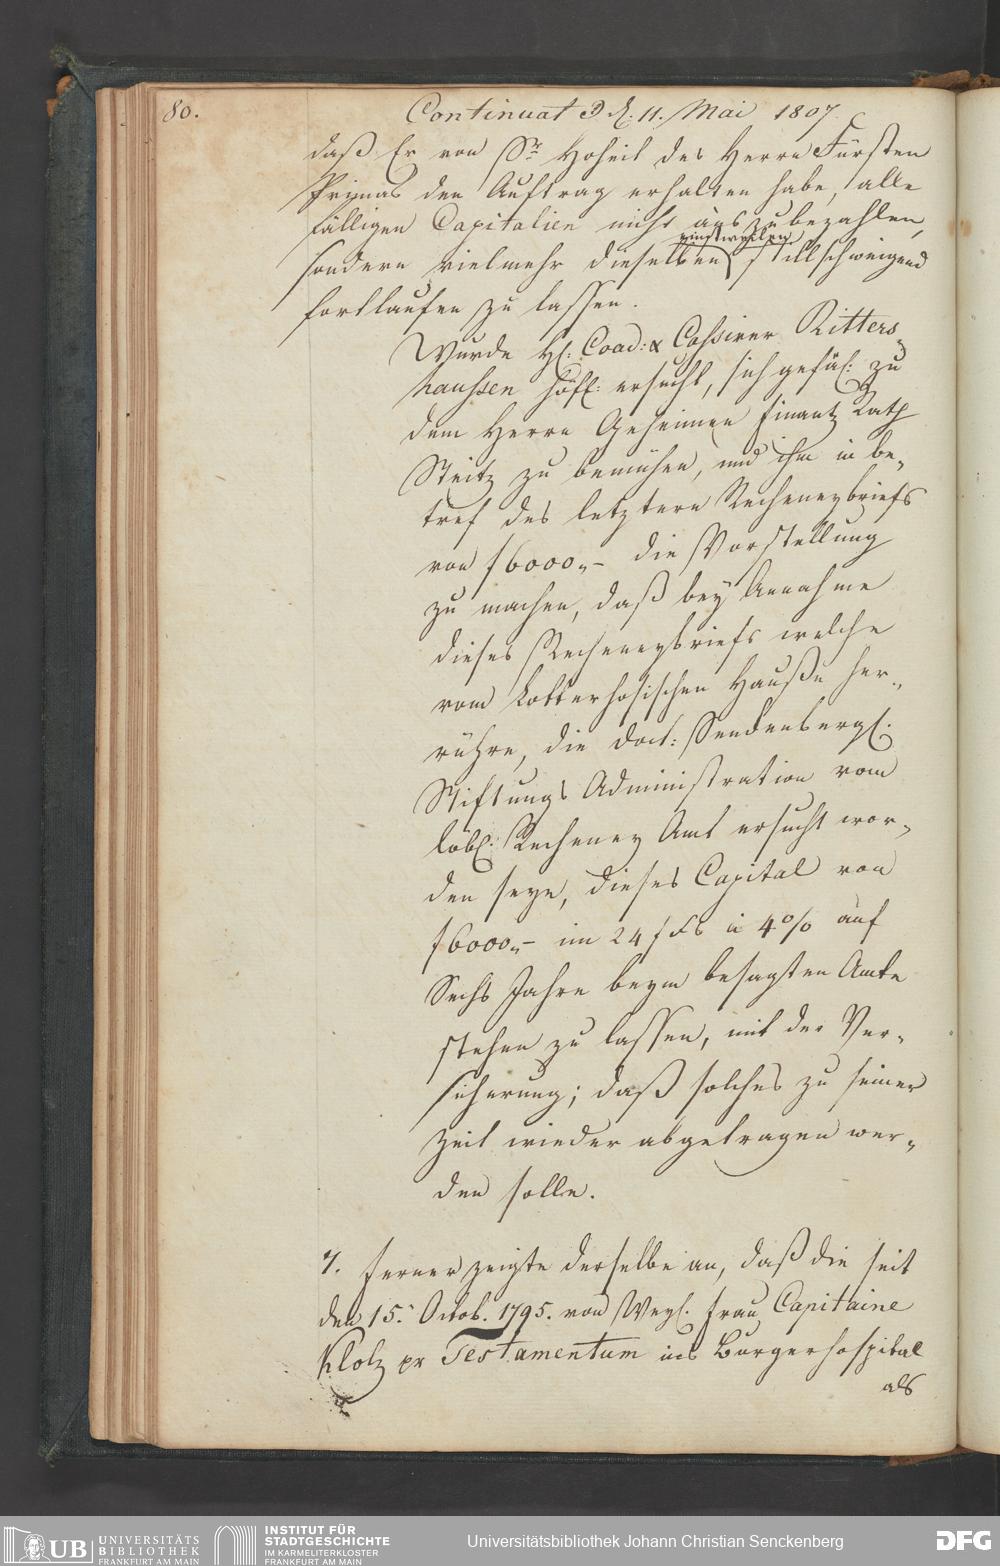 80.
Continuat d. 11. Mai 1807.
daß Er von Sr. Hoheit des Herrn Fürsten
Primas den Auftrag erhalten habe, alle
fälligen Capitalien nicht auszubezahlen,
einstweilen
sondern vielmehr dieselben stillschweigend
fortlaufen zu lassen.
Wurde H: Coad: & Cassirer Ritters„
haussen höfl: ersucht, sich gefäl: zu
dem Herrn Geheimen Finantz Rath
Steitz zu bemühen, und ihm in be„
tref des letztern Recheneybriefs
von f6000„– die Vorstellung
zu machen, daß bey Annahme
dieses Recheneybriefs welche
vom Lotterhosischen Hauße her„
rühre, die doct: Senckenbergl.
Stiftungs Administration vom
löbl: Recheney Amt ersucht wor„
den seye, dieses Capital von
f6000„– im 24 f Fs à 4% auf
Sechs Jahre beym besagten Amte
stehen zu lassen, mit der Ver„
sicherung; daß solches zu seiner
Zeit wieder abgetragen wer„
den solle.
7. Ferner zeigte derselbe an, daß die seit
den 15. Octob. 1795. von Weyl. Frau Capitaine
Klotz pr Testamentum ins Burgerhospital
als
UB UNIVERSITÄTS
BIBLIOTHEK
FRANKFURT AM MAIN
INSTITUT FÜR
STADTGESCHICHTE
IM KARMELITERKLOSTER
FRANKFURT AM MAIN
Universitätsbibliothek Johann Christian Senckenberg
DFG